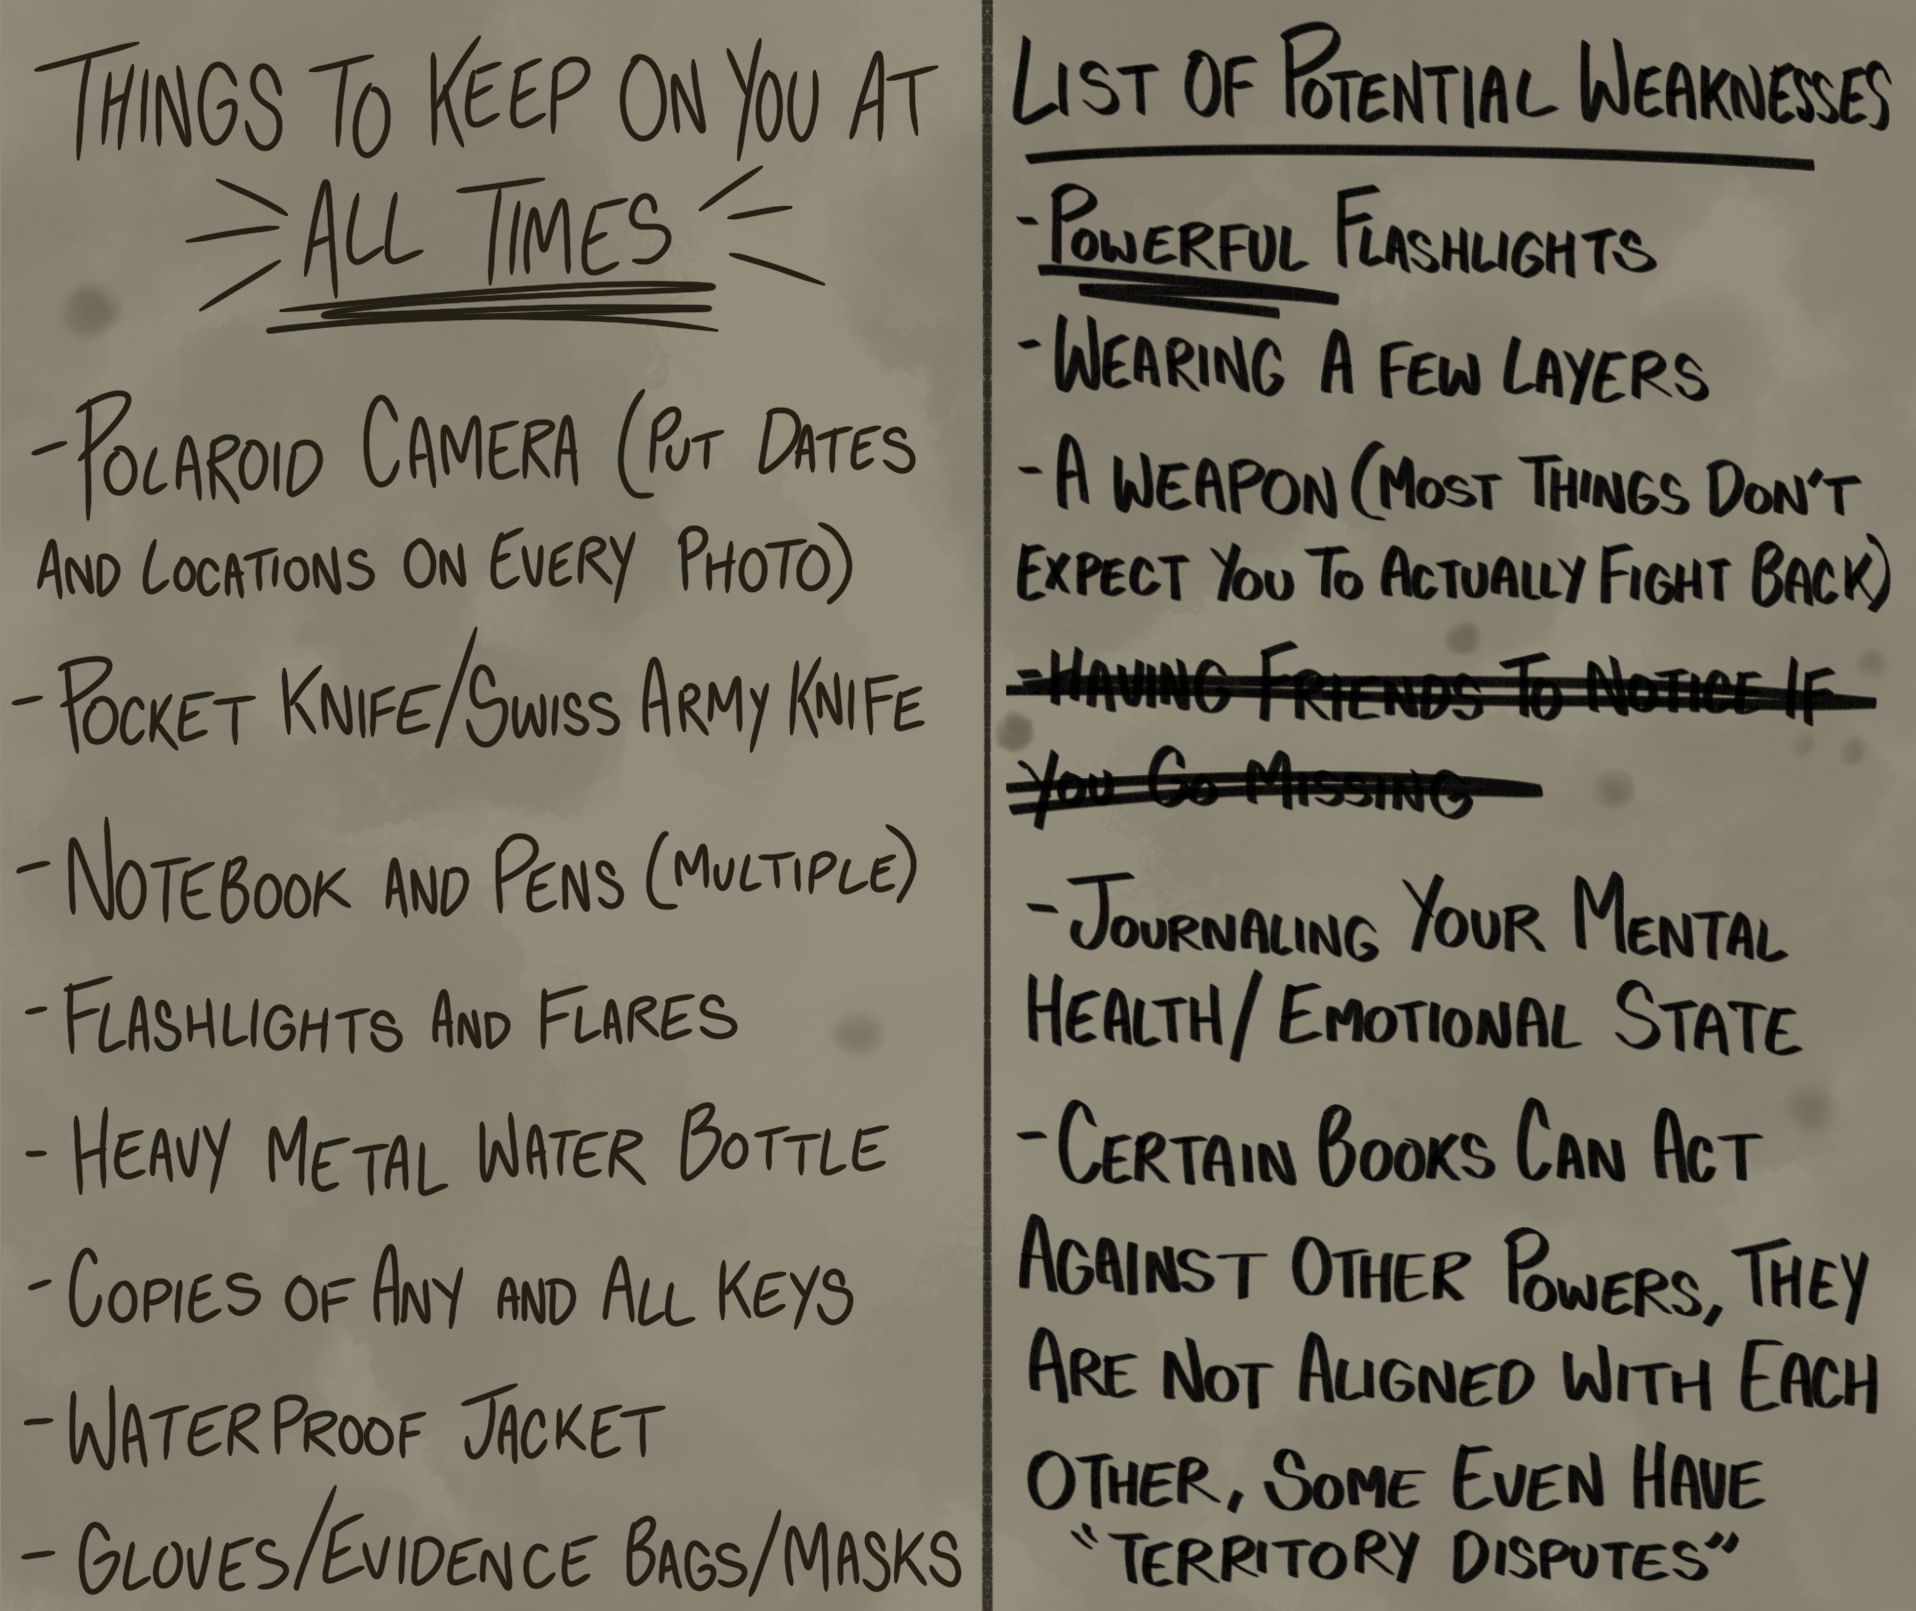 Things To Keep On You At
All Times
- Polaroid Camera (Put Dates
and Locations On Every Photo)
- Pocket Knife/Swiss Army Knife
- Notebook and Pens (Multiple)
- Flashlights And Flares
- Heavy Metal Water Bottle
- Copies of Any and All Keys
- Waterproof Jacket
- Gloves/Evidence Bags/Masks
List Of Potential Weaknesses
- Powerful Flashlights
- Wearing A Few Layers
- A Weapon (Most Things Don't
Expect You To Actually Fight Back)
- Having Friends To Notice If
You Go Missing
- Journaling Your Mental
Health/Emotional State
- Certain Books Can Act
Against Other Powers, They
Are Not Aligned With Each
Other, Some Even Have
"Territory Disputes"